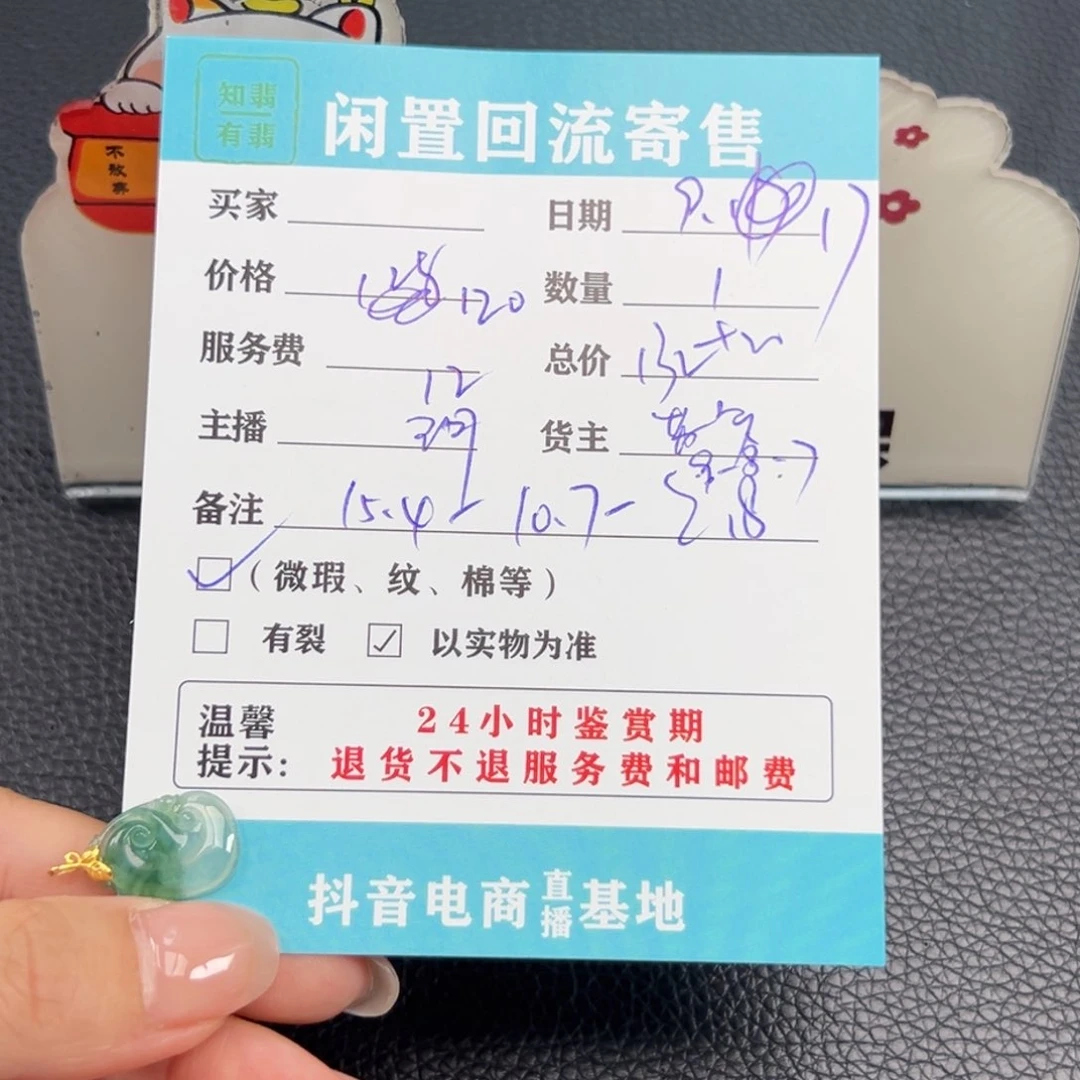 知翡
有翡
闲置回流寄售
不敢弃
买家 日期 9. 17
价格 120 数量 1
服务费 12 总价 132+20
主播 货主
备注 15.4- 10.7-
(微瑕、纹、棉等)
有裂 ☑ 以实物为准
温馨 24小时鉴赏期
提示: 退货不退服务费和邮费
抖音电商直播基地